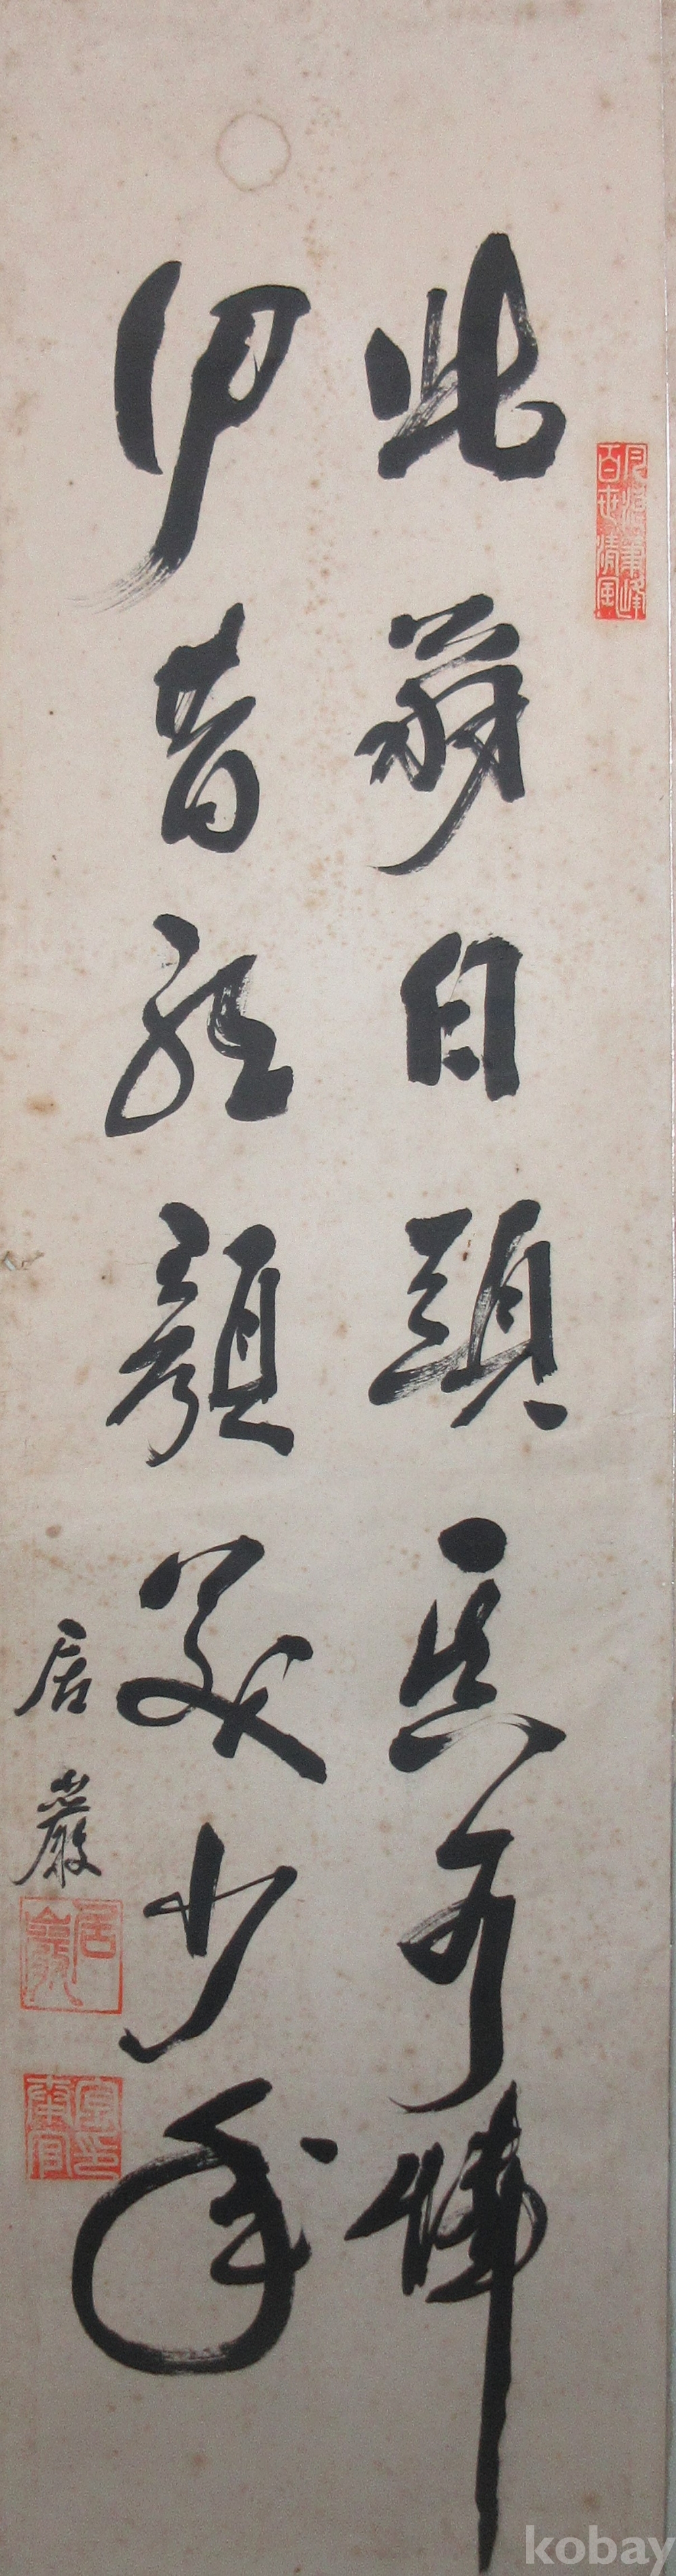 此翁白頭真可憐
伊昔紅顏美少年
居巖
kobay